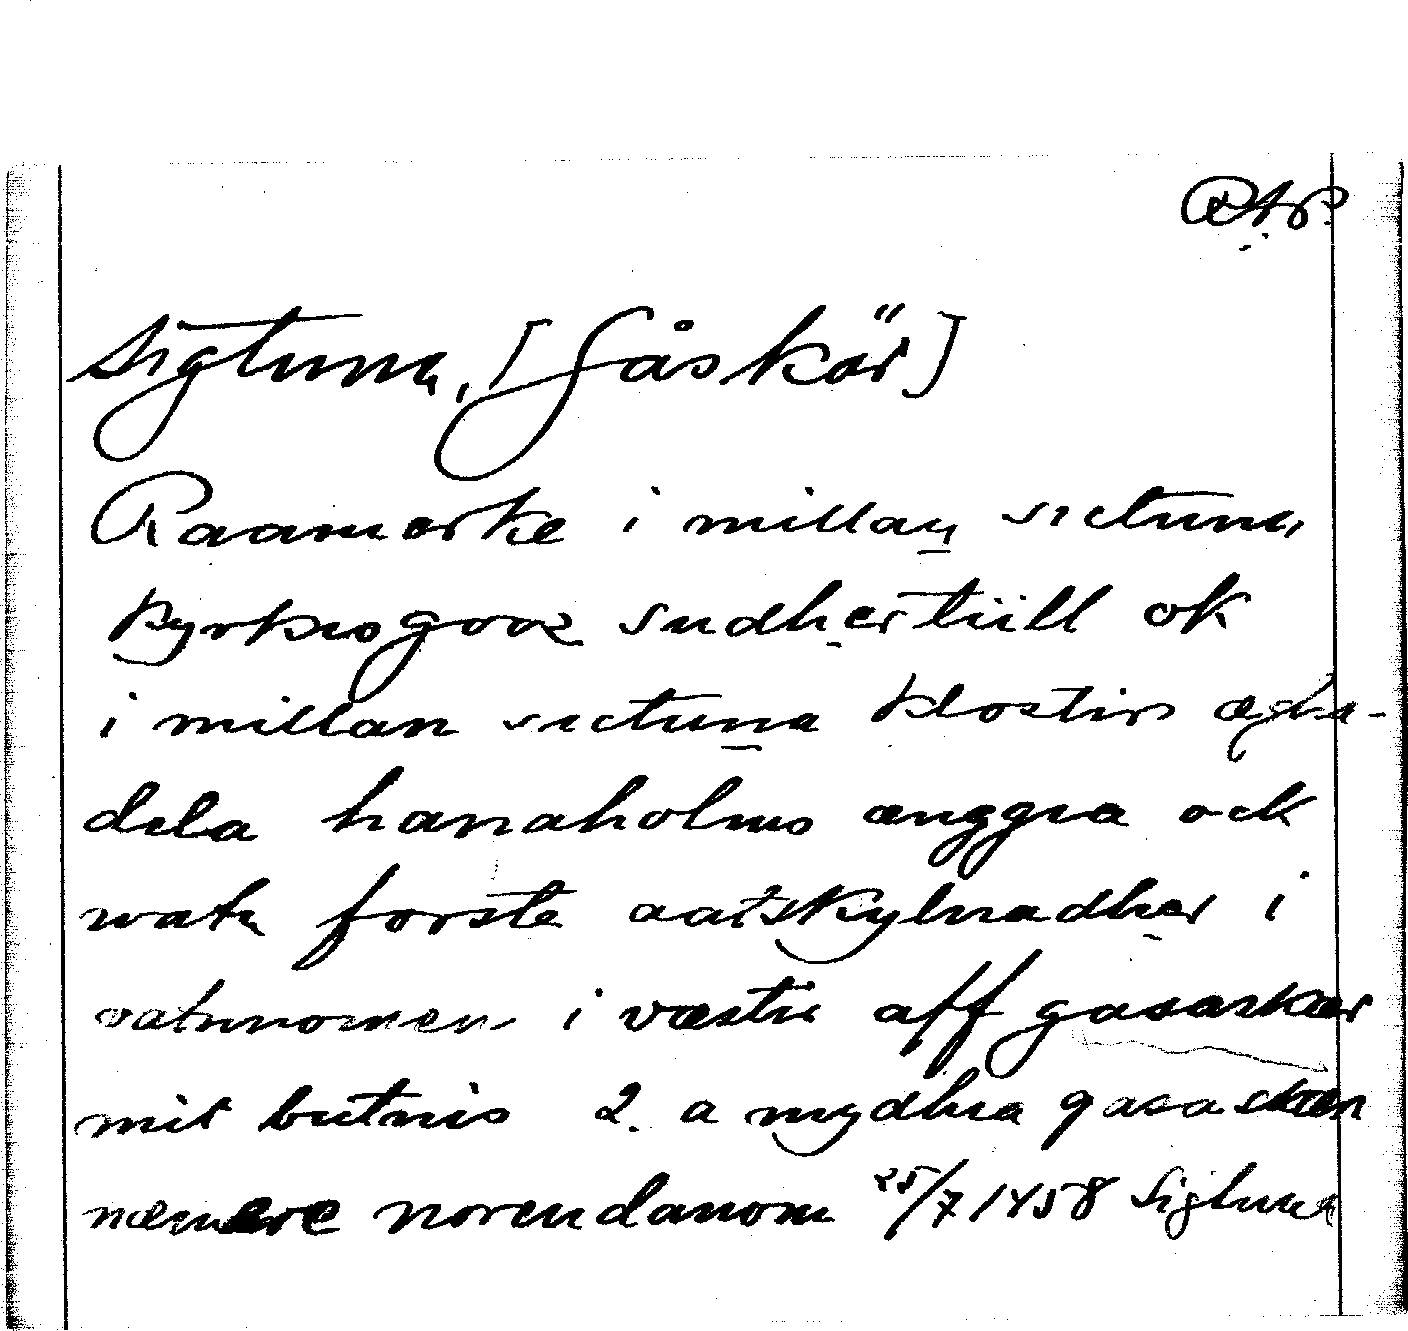 RAP.
Sigtuna, [Gåskär]
Raamerke i millan sictuna
kyrkiogooz sudhertiill ok
i millan sictuna klostirs ægha-
dela hanaholms ænggia ock
watn forste aatskylnadher i
vatnnomen i væstre aff gasaskær
mit butnis 2. a mydhia gasaskær
næmere norendanom 25/7 1458 Sigtuna